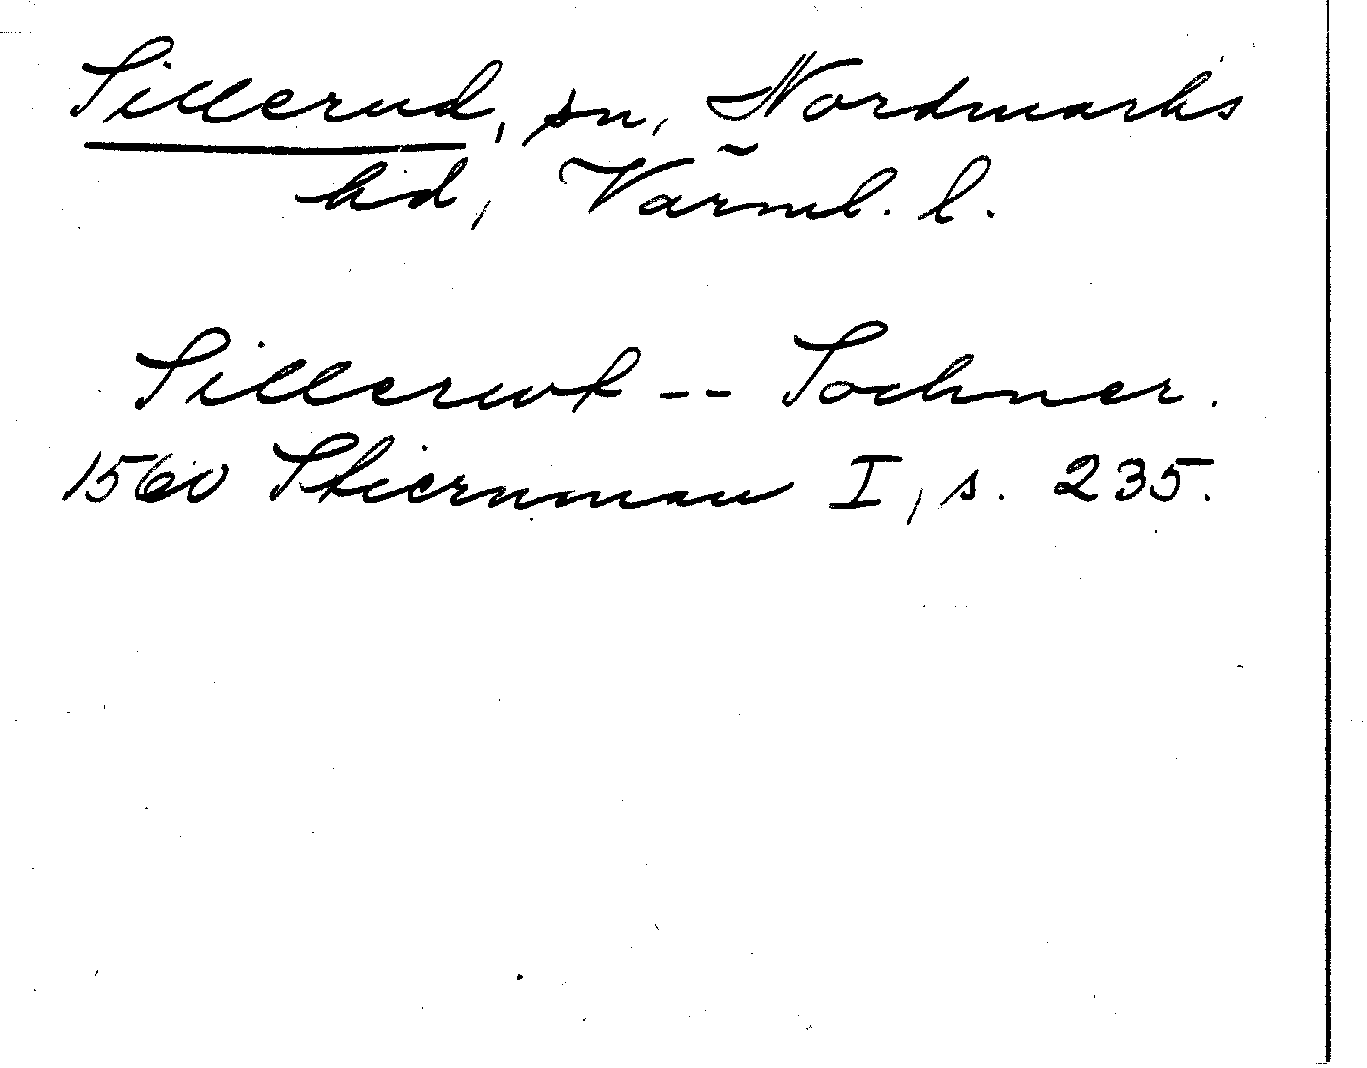 Sillerud, sn, Nordmarks
hd, Värml. l.
Sillerwt -- Sochner.
1560 Stiernman I, s. 235.